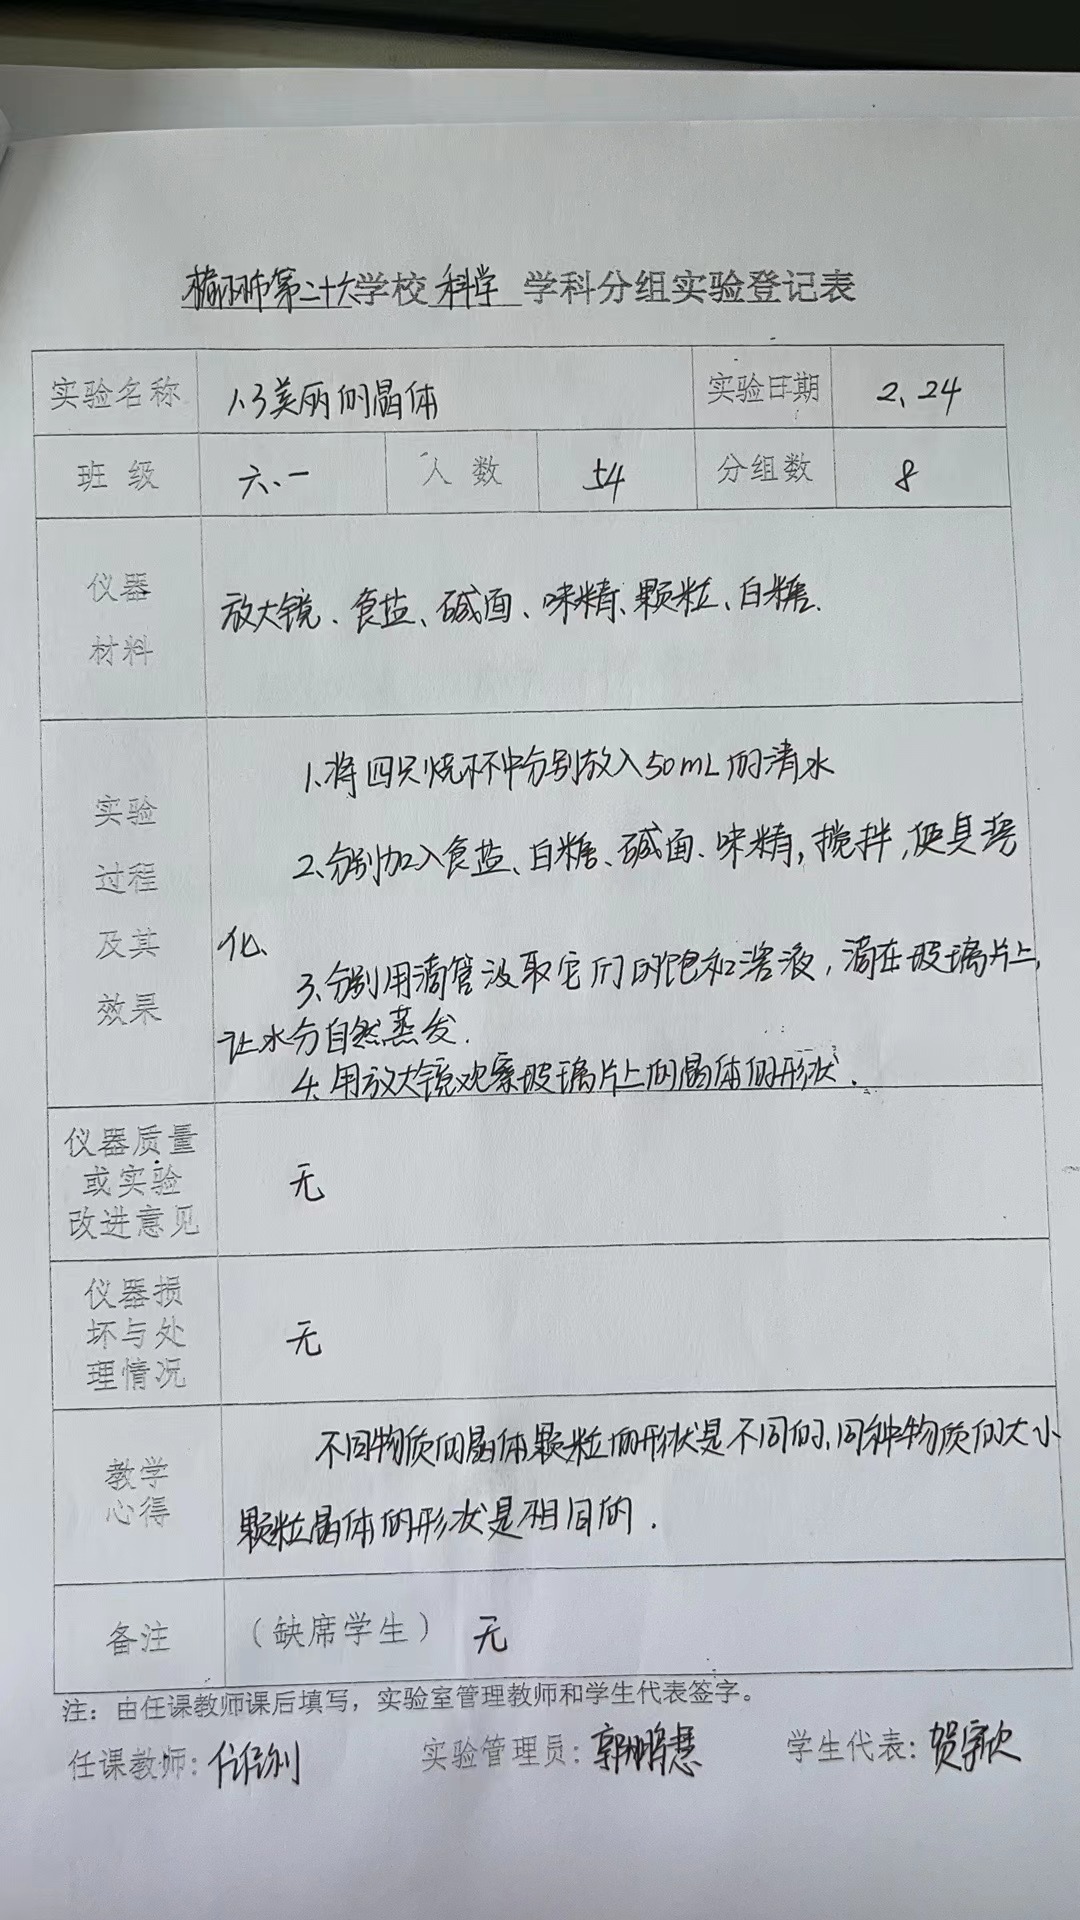 榆林市第二十六学校 科学 学科分组实验登记表
实验名称 1.3美丽的晶体 实验日期 2.24
班 级 六.一 人 数 54 分组数 8
仪器
材料
放大镜、食盐、碱面、味精、颗粒、白糖.
实验
过程
及其
效果
1.将四只烧杯中分别放入50mL的清水
2.分别加入食盐、白糖、碱面、味精,搅拌,使其溶
化.
3.分别用滴管汲取它们的饱和溶液,滴在玻璃片上,
让水分自然蒸发.
4.用放大镜观察玻璃片上的晶体的形状.
仪器质量
或实验
改进意见
无
仪器损
坏与处
理情况
无
教学
心得
不同物质的晶体颗粒的形状是不同的,同种物质的大小
颗粒晶体的形状是相同的.
备注 (缺席学生) 无
注:由任课教师课后填写,实验室管理教师和学生代表签字。
任课教师: 实验管理员:郭鹏慧 学生代表:贺宇欣